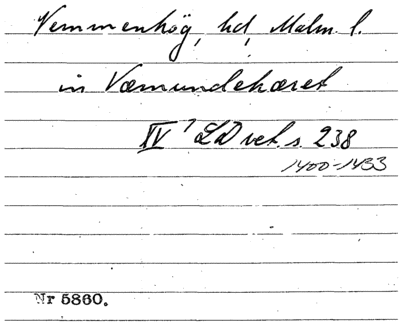 Vemmenhög, hd, Malm. l.
in Væmundehæret
IV 7 LD vet. s. 238
1400-1433
Nr 5860.